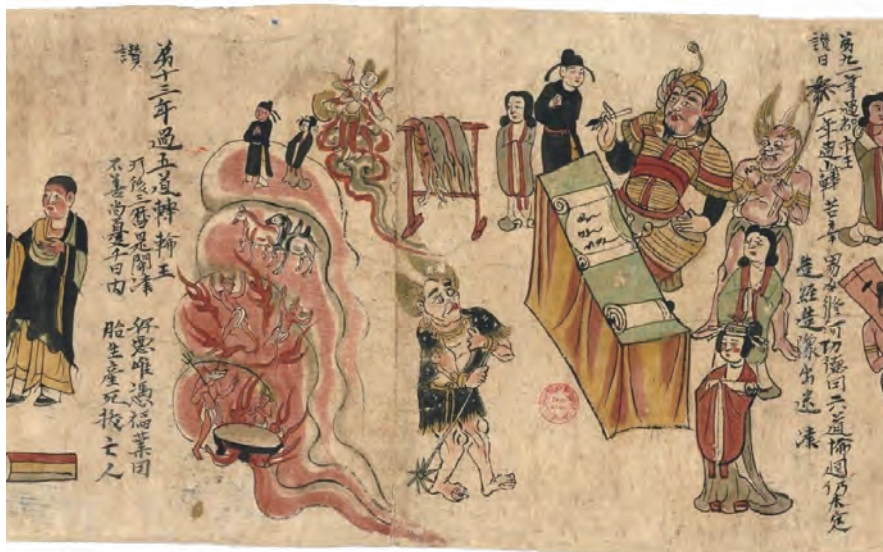 第九一年過都市王
讚曰
一年過此轉苦辛 男女修何功德因 六道輪迴仍未定
造經造像出迷津
第十三年過五道轉輪王
讚
所後三曆是關津 好惡唯憑福業因
不善尚憂千日內 胎生產死拔亡人